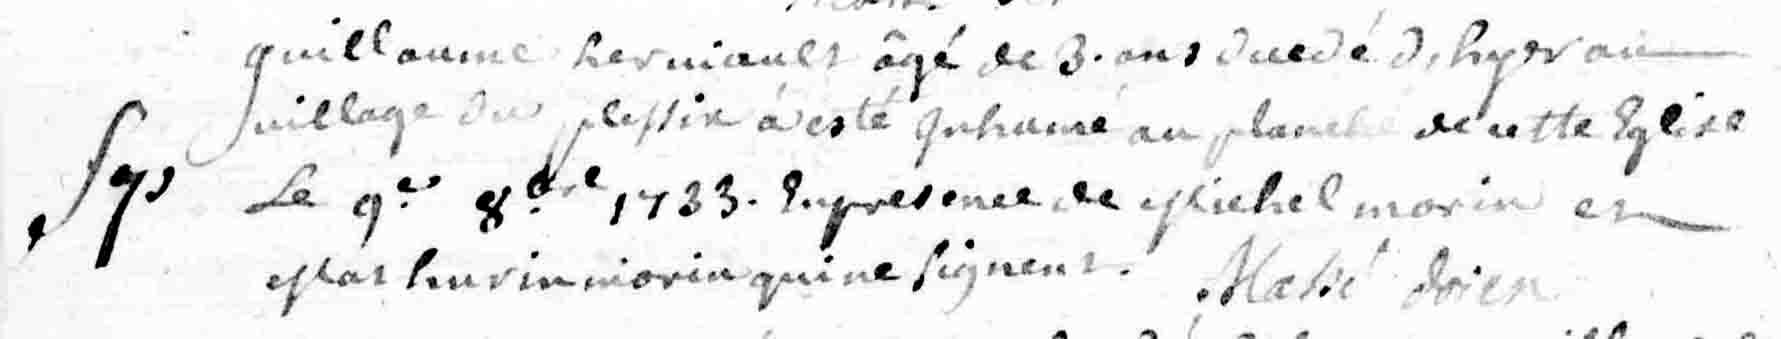 guillaume herviault âgé de 3. ans ducdé d'hyer au
village du plessix a esté Inhumé au planché de cette Eglise
Le 9.e 8.bre 1733. En presence de Michel morin et
Mathurin morin qui ne signent. Massé doien